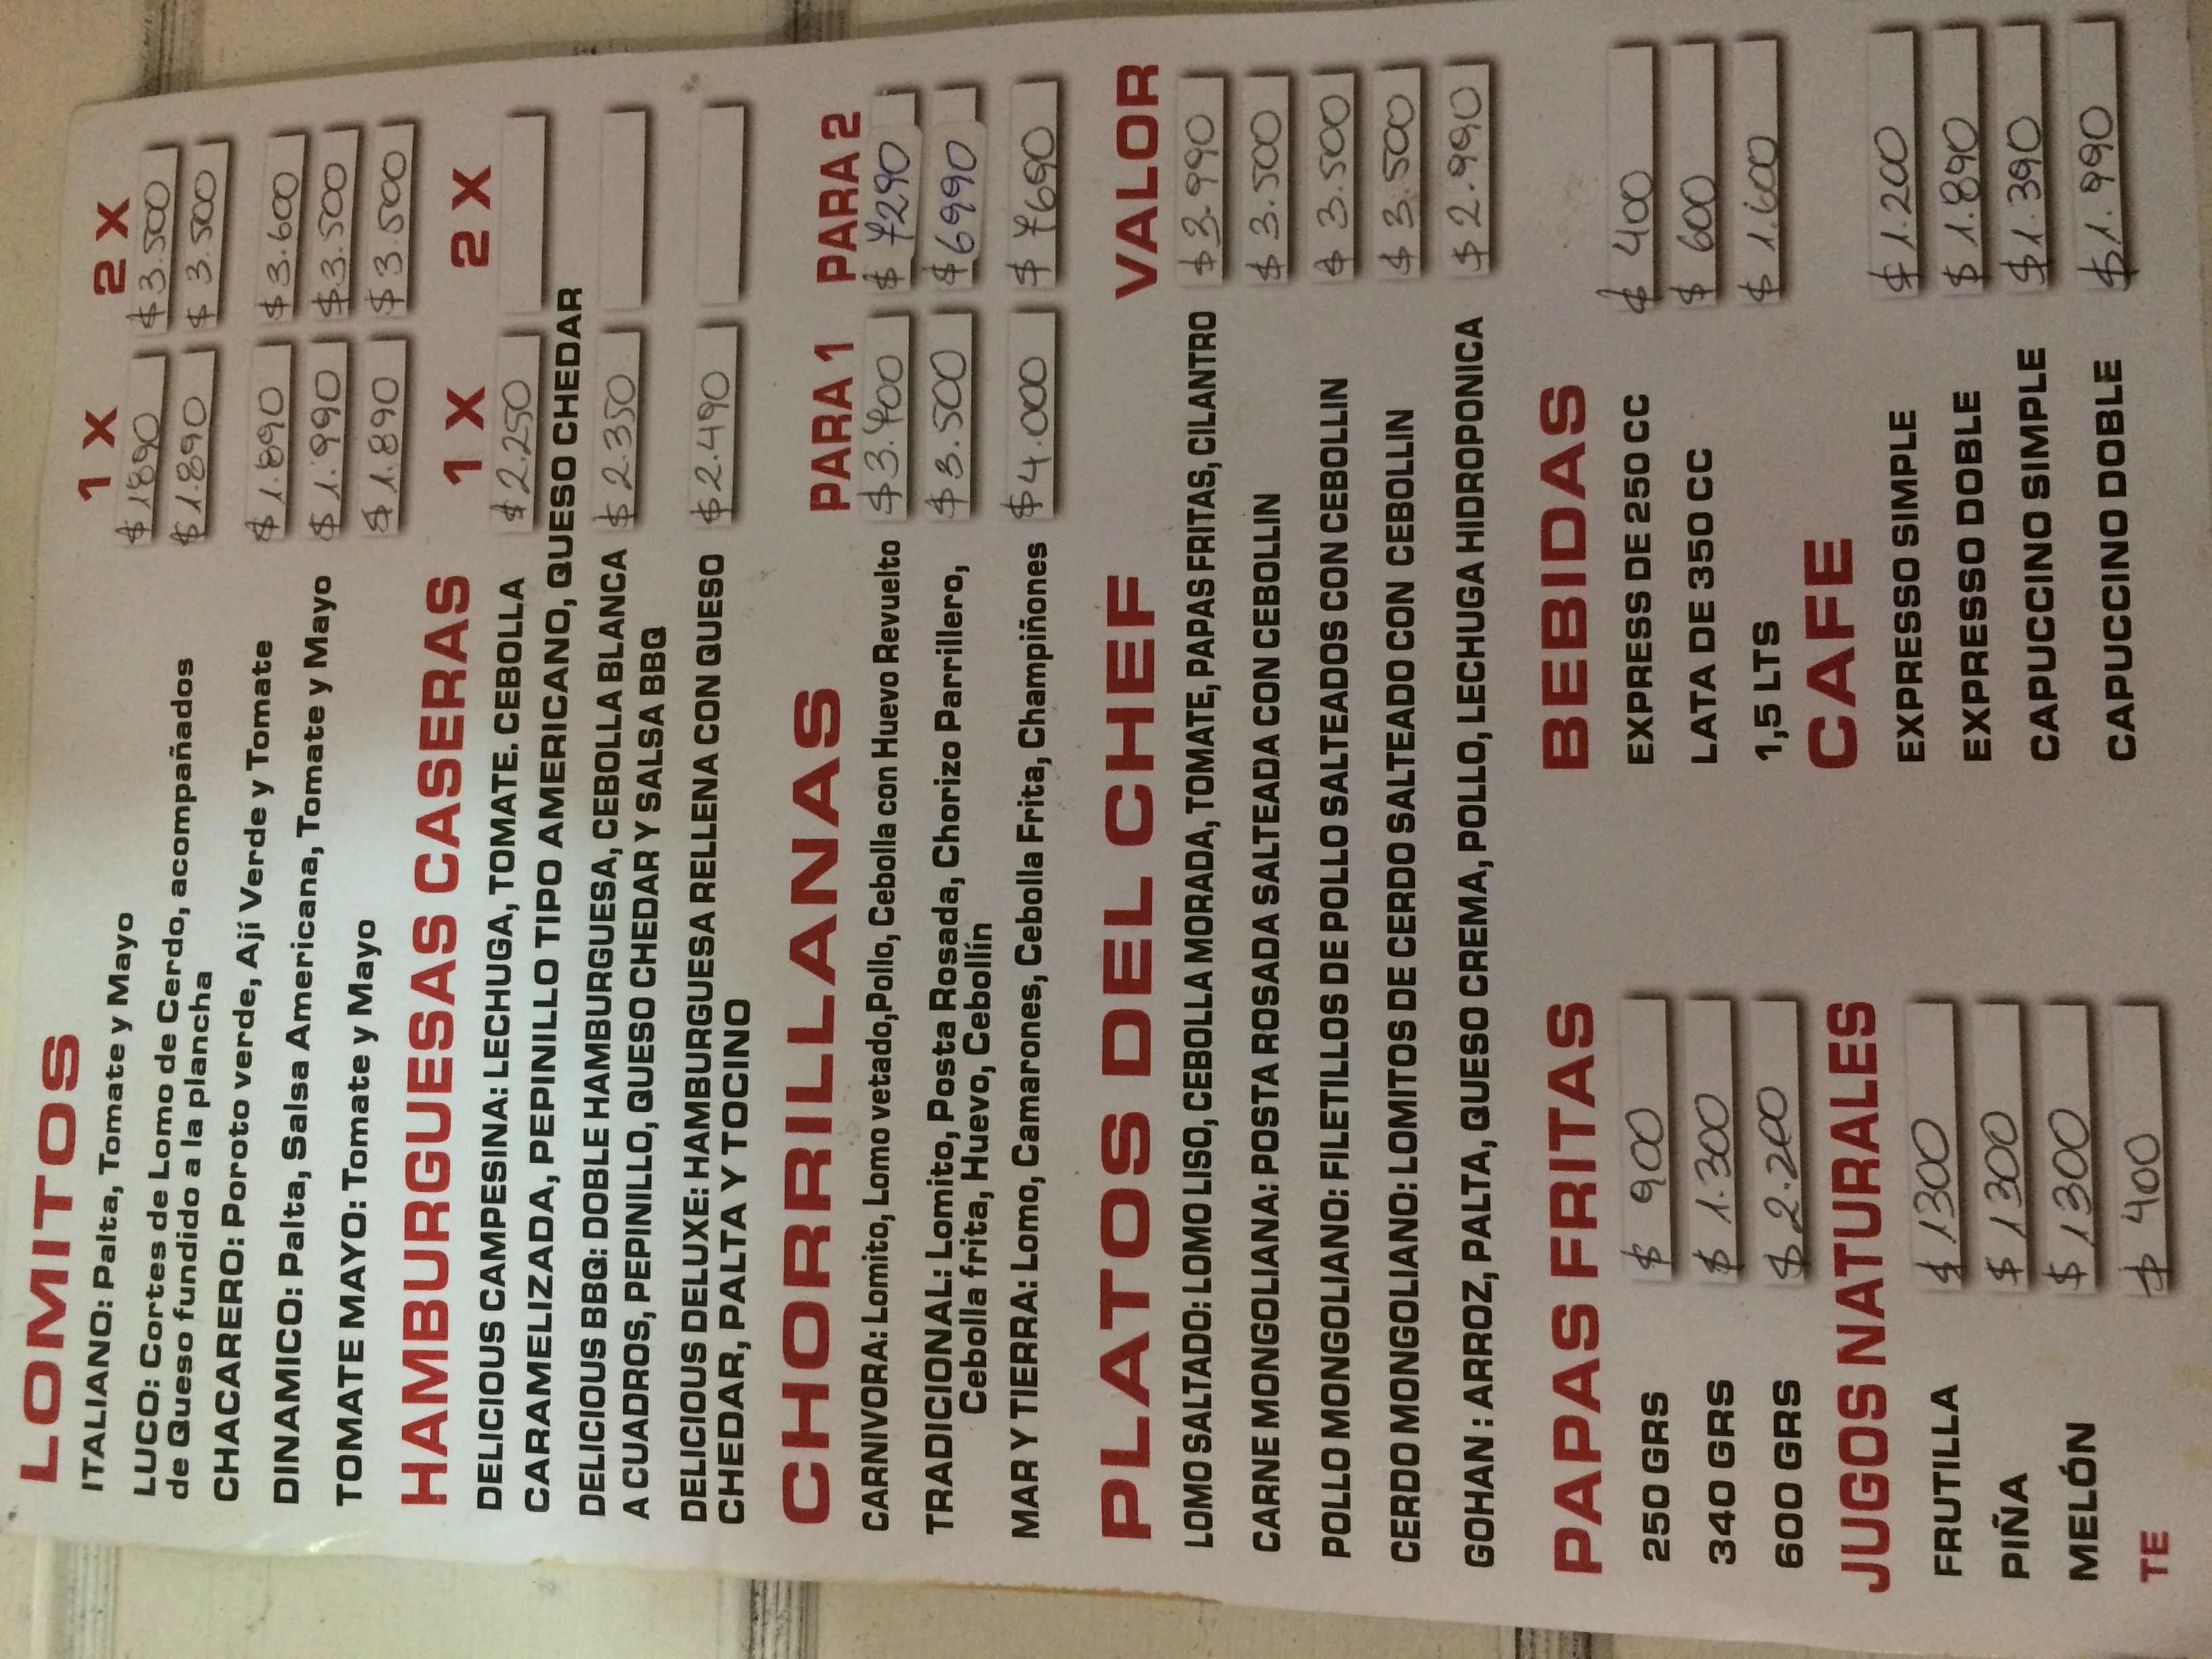 LOMITOS 1 X 2 X
ITALIANO: Palta, Tomate y Mayo $1890 $3.500
LUCO: Cortes de Lomo de Cerdo, acompañados $1.890 $3.500
de Queso fundido a la plancha
CHACARERO: Poroto verde, Ají Verde y Tomate $1.890 $3.600
DINAMICO: Palta, Salsa Americana, Tomate y Mayo $1.990 $3.500
TOMATE MAYO: Tomate y Mayo $1.890 $3.500
HAMBURGUESAS CASERAS 1 X 2 X
DELICIOUS CAMPESINA: LECHUGA, TOMATE. CEBOLLA $2.250
CARAMELIZADA, PEPINILLO TIPO AMERICANO, QUESO CHEDAR
DELICIOUS BBQ: DOBLE HAMBURGUESA, CEBOLLA BLANCA $2.350
A CUADROS, PEPINILLO, QUESO CHEDAR Y SALSA BBQ
DELICIOUS DELUXE: HAMBURGUESA RELLENA CON QUESO $2.490
CHEDAR, PALTA Y TOCINO
CHORRILLANAS PARA 1 PARA 2
CARNIVORA: Lomito, Lomo vetado,Pollo, Cebolla con Huevo Revuelto $ 7290
TRADICIONAL: Lomito, Posta Rosada, Chorizo Parrillero, $3.500 $6990
Cebolla frita, Huevo, Cebollín
MAR Y TIERRA: Lomo, Camarones, Cebolla Frita, Champiñones $4.000 $ 7690
PLATOS DEL CHEF VALOR
LOMO SALTADO: LOMO LISO, CEBOLLA MORADA, TOMATE, PAPAS FRITAS, CILANTRO $3.990
CARNE MONGOLIANA: POSTA ROSADA SALTEADA CON CEBOLLIN $3.500
POLLO MONGOLIANO: FILETILLOS DE POLLO SALTEADOS CON CEBOLLIN $3.500
CERDO MONGOLIANO: LOMITOS DE CERDO SALTEADO CON CEBOLLIN $3.500
GOHAN : ARROZ, PALTA, QUESO CREMA, POLLO, LECHUGA HIDROPONICA $2.990
PAPAS FRITAS
250 GRS $ 900
340 GRS $ 1.300
600 GRS $2.200
JUGOS NATURALES
FRUTILLA $1300
PIÑA $1300
MELÓN $1300
TE $ 400
BEBIDAS
EXPRESS DE 250 CC $ 400
LATA DE 350 CC $ 600
1,5 LTS $ 1.600
CAFE
EXPRESSO SIMPLE $1.200
EXPRESSO DOBLE $1.890
CAPUCCINO SIMPLE $1.390
CAPUCCINO DOBLE $1.990